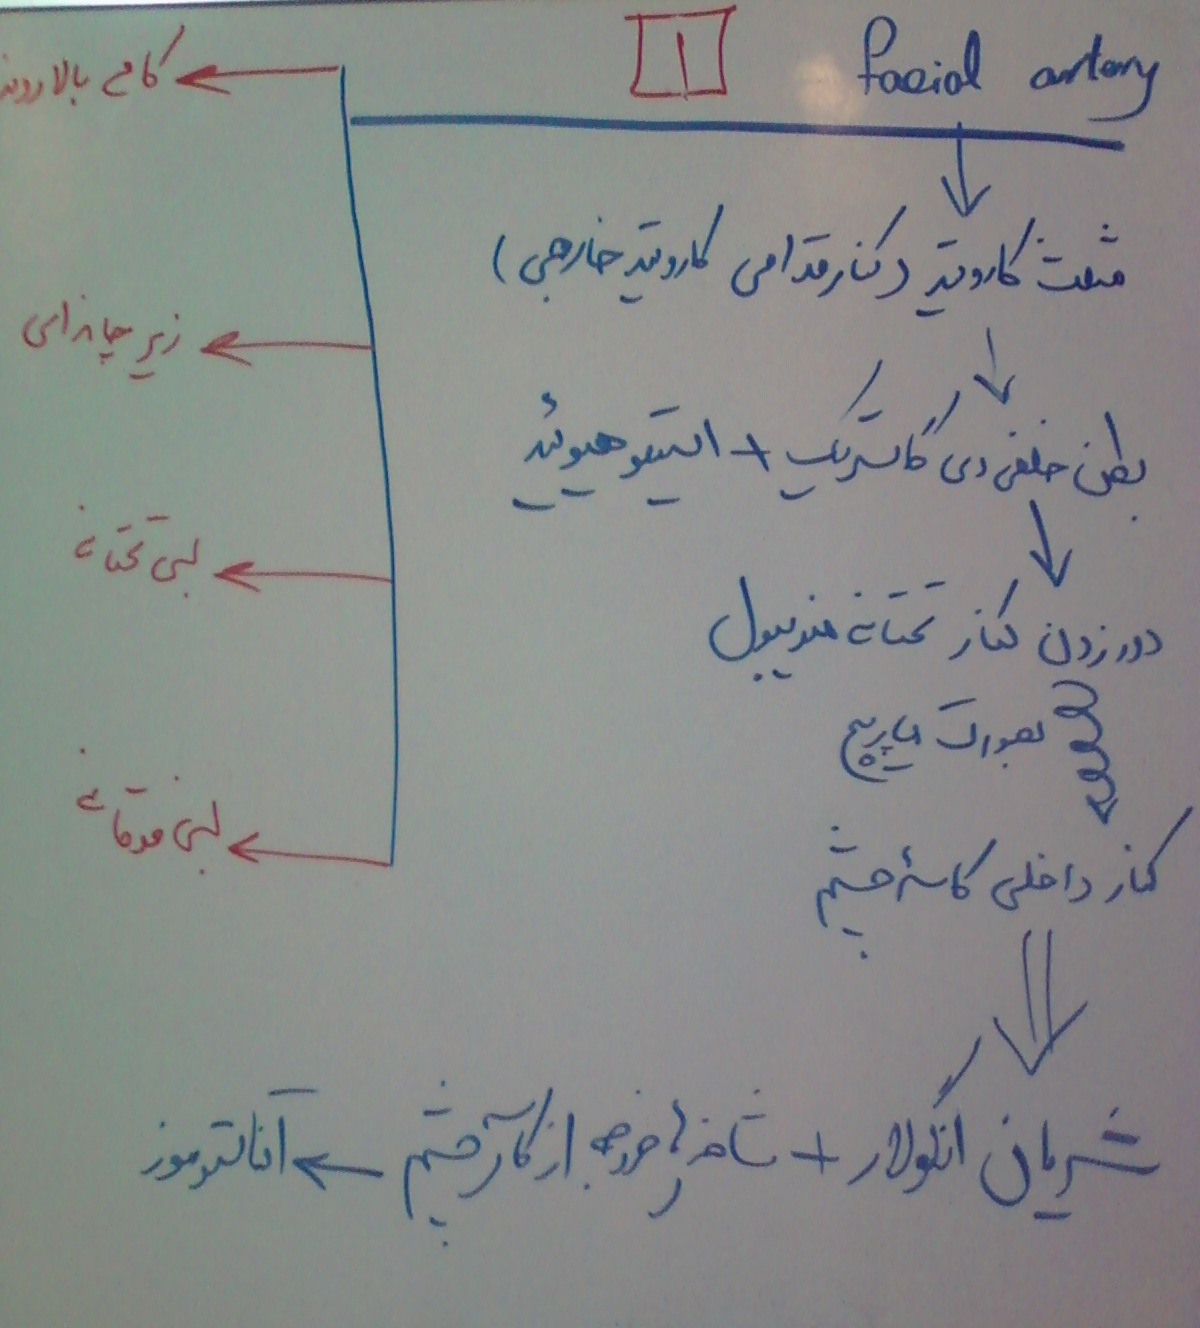 facial artery
۱
مثلث کاروتید (کنار قدامی کاروتید خارجی)
بطن خلفی دی گاستریک + استیلوهیوئید
دور زدن کنار تحتانی مندیبول
بصورت مارپیچ
کنار داخلی کاسهٔ چشم
شریان انگولار + شاخه ها خروجی از کاسه چشم ← آناستوموز
کامی بالارونده
زیر چانه‌ای
لبی تحتانی
لبی فوقانی